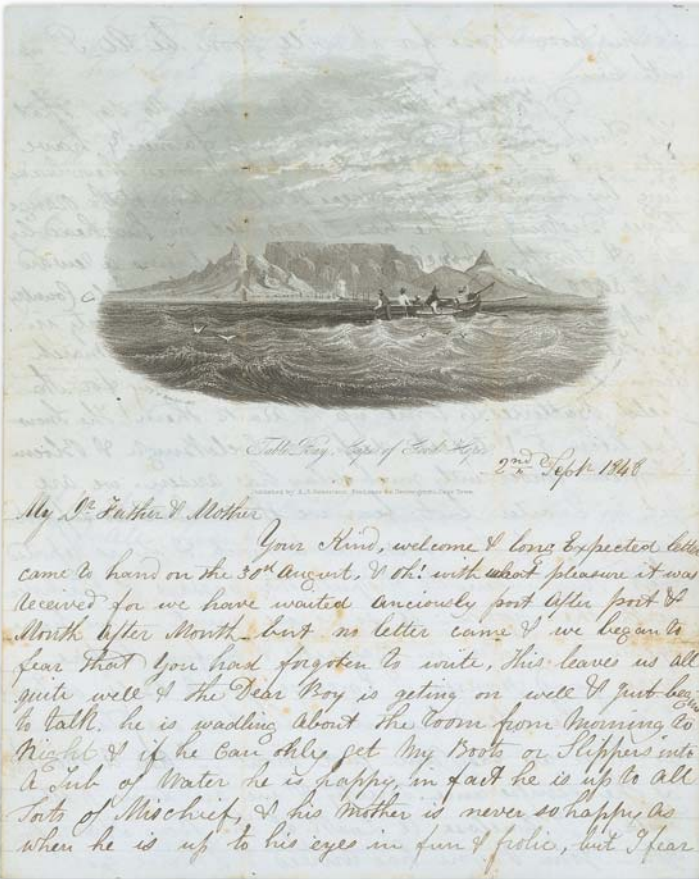 Table Bay, Cape of Good Hope
2nd Septr 1848
My Dr Father & Mother
Your Kind, welcome & long Expected letter
came to hand on the 30th August, & oh! with what pleasure it was
received for we have waited anciously post after post &
Month after Month but no letter came & we began to
fear that you had forgoten to write, This leaves us all
quite well & the Dear Boy is geting on well & just begins
to talk. he is wadling about the room from Morning to
Night & if he Can only get My Boots or Slippers into
A Tub of Water he is happy, in fact he is up to all
Sorts of Mischief, & his Mother is never so happy as
when he is up to his eyes in fun & frolic, but I fear